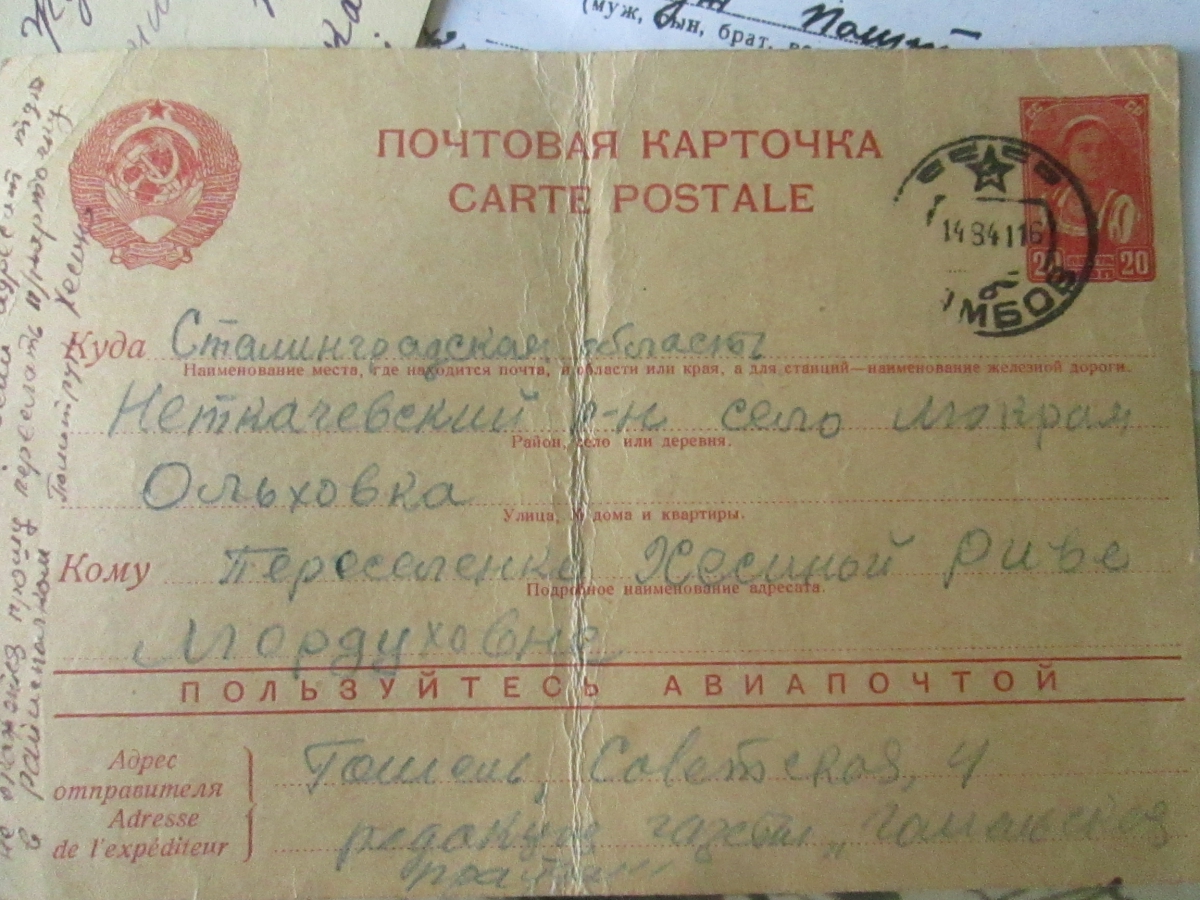 (муж, сын, брат,
ПОЧТОВАЯ КАРТОЧКА
CARTE POSTALE
14 8 41 16
МБОВ
20 20
Куда Сталинградская область
Наименование места, где находится почта, и области или края, а для станций—наименование железной дороги.
Неткачевский р-н село Мокрая
Район, село или деревня.
Ольховка
Улица, № дома и квартиры.
Кому Переселенке Хесиной Риве
Подробное наименование адресата.
Мордуховне
ПОЛЬЗУЙТЕСЬ АВИАПОЧТОЙ
Адрес
отправителя
Adresse
de l'expéditeur
Гомель, Советская, 4
редакция газеты „Гомельская
правда"
прошу переслать
в райисполком
Политрук Хесин